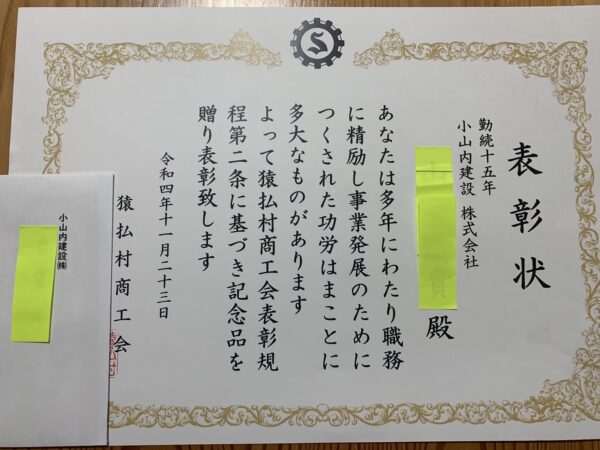 S
表彰状
勤続十五年
小山内建設 株式会社
殿
あなたは多年にわたり職務
に精励し事業発展のために
つくされた功労はまことに
多大なものがあります
よって猿払村商工会表彰規
程第二条に基づき記念品を
贈り表彰致します
令和四年十一月二十三日
猿払村商工会
小山内建設㈱